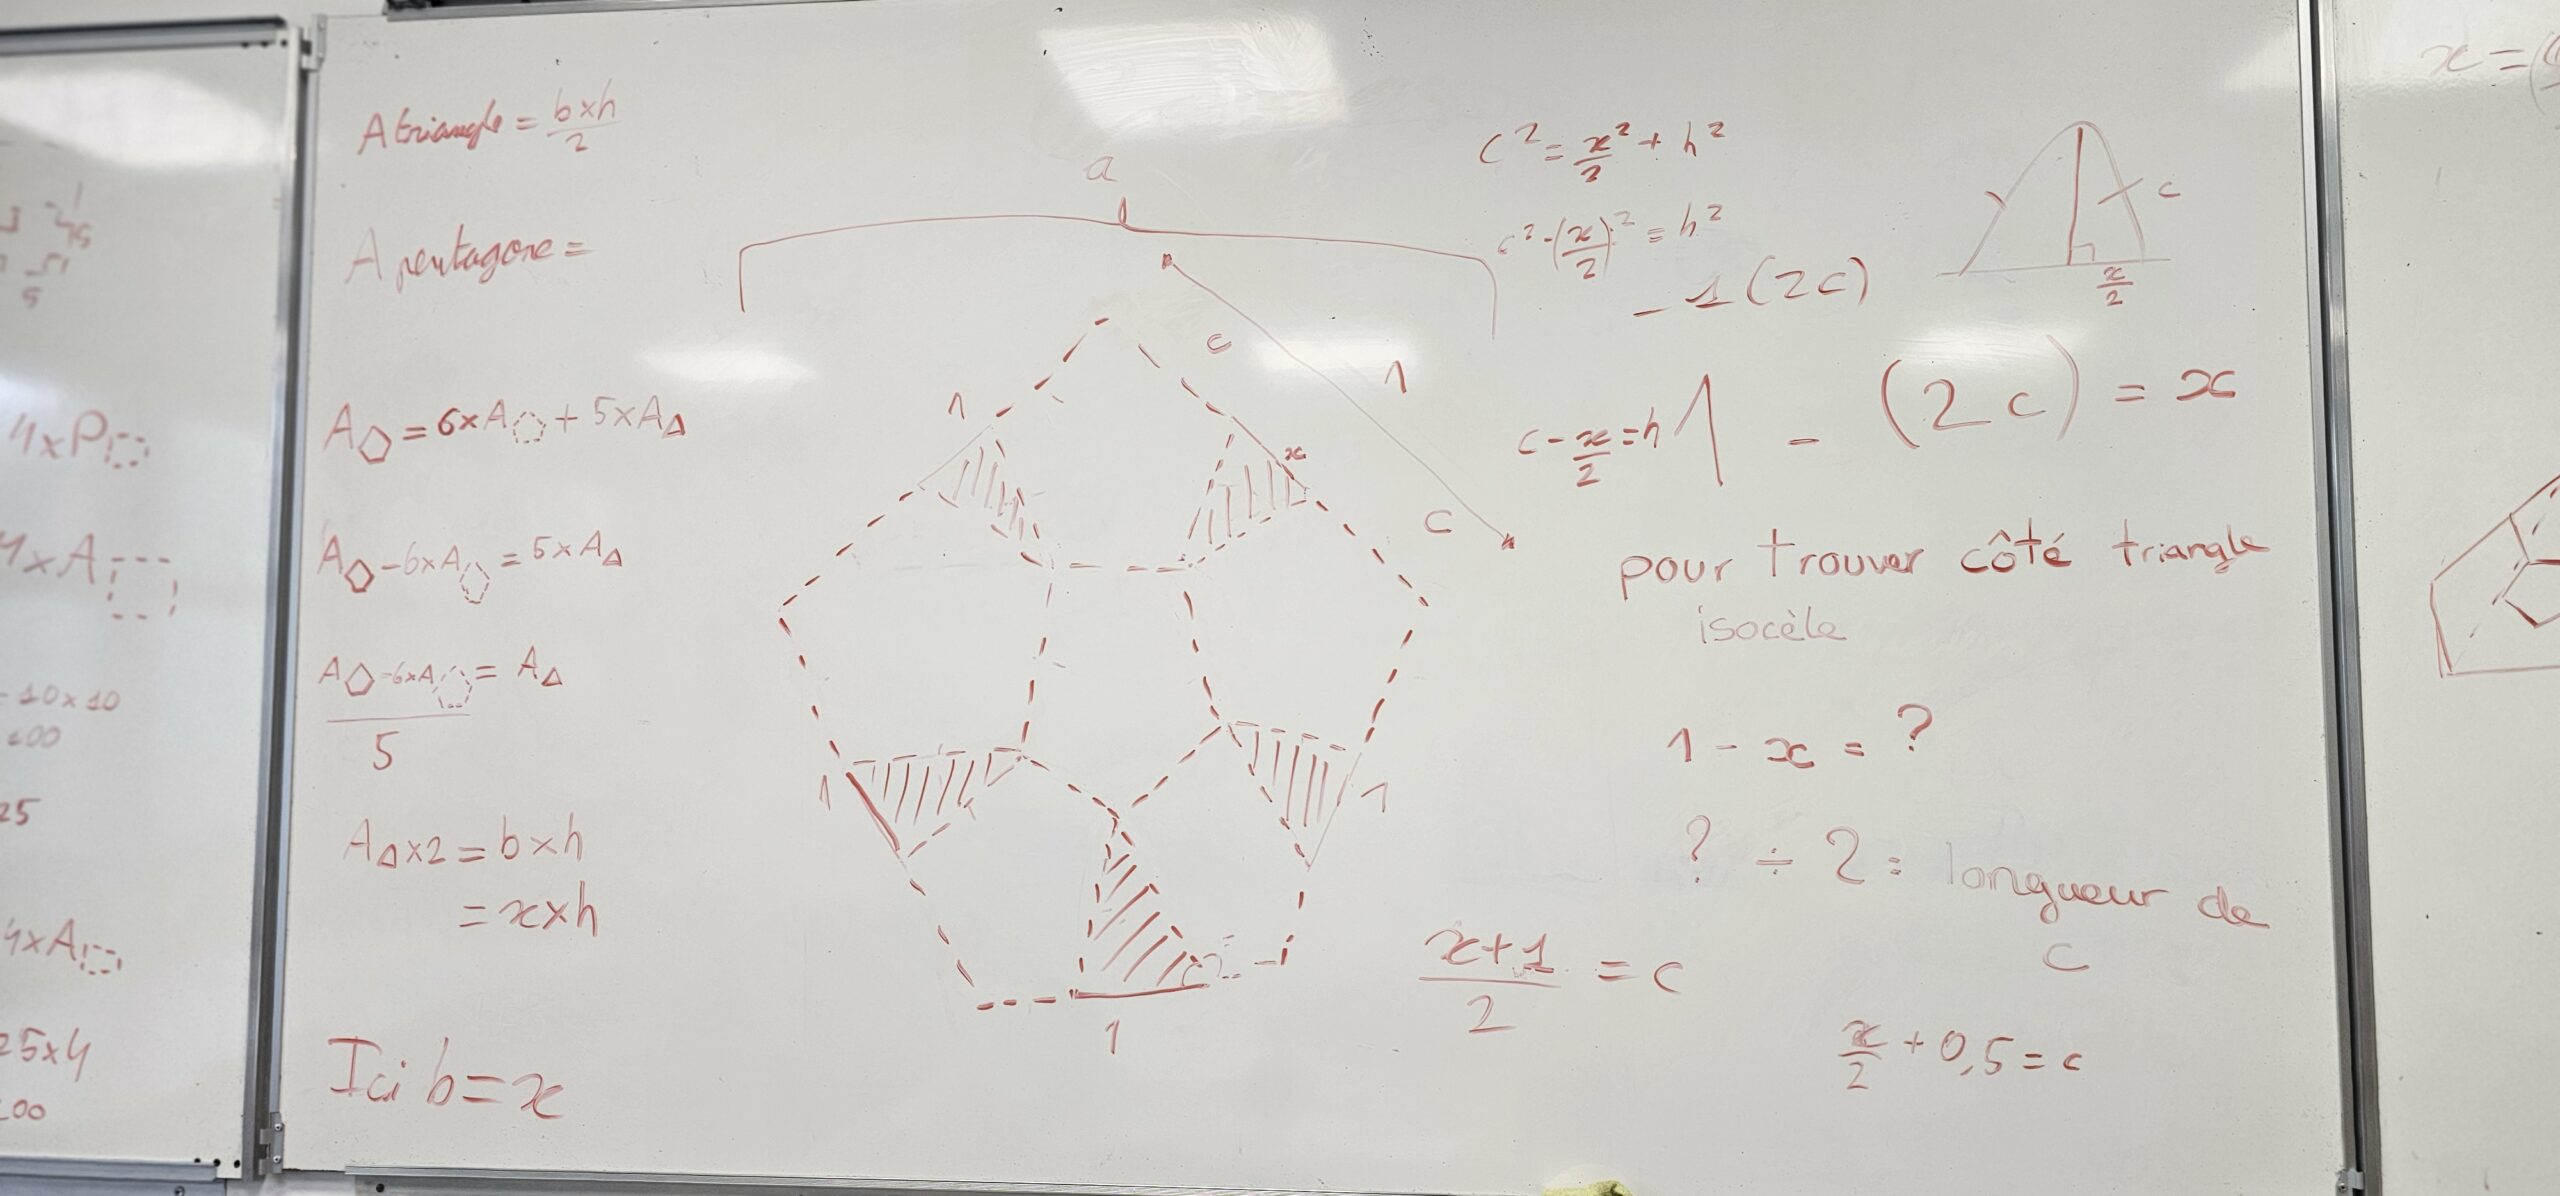 4xP
4xA
10x10
25
4xA
25x4
A triangle = b×h/2
A pentagone =
A⬠ = 6×A⬠ + 5×A△
A⬠ - 6×A⬠ = 5×A△
A⬠ - 6×A⬠ / 5 = A△
A△×2 = b×h
= x×h
Ici b = x
a
1
c
x
1
c
1
1
1
c² = x²/2 + h²
c² - (x/2)² = h²
- 1 (2c)
c
x/2
c - x/2 = h
1 - (2c) = x
pour trouver côté triangle
isocèle
1 - x = ?
? ÷ 2 = longueur de
c
x+1/2 = c
x/2 + 0,5 = c
x =